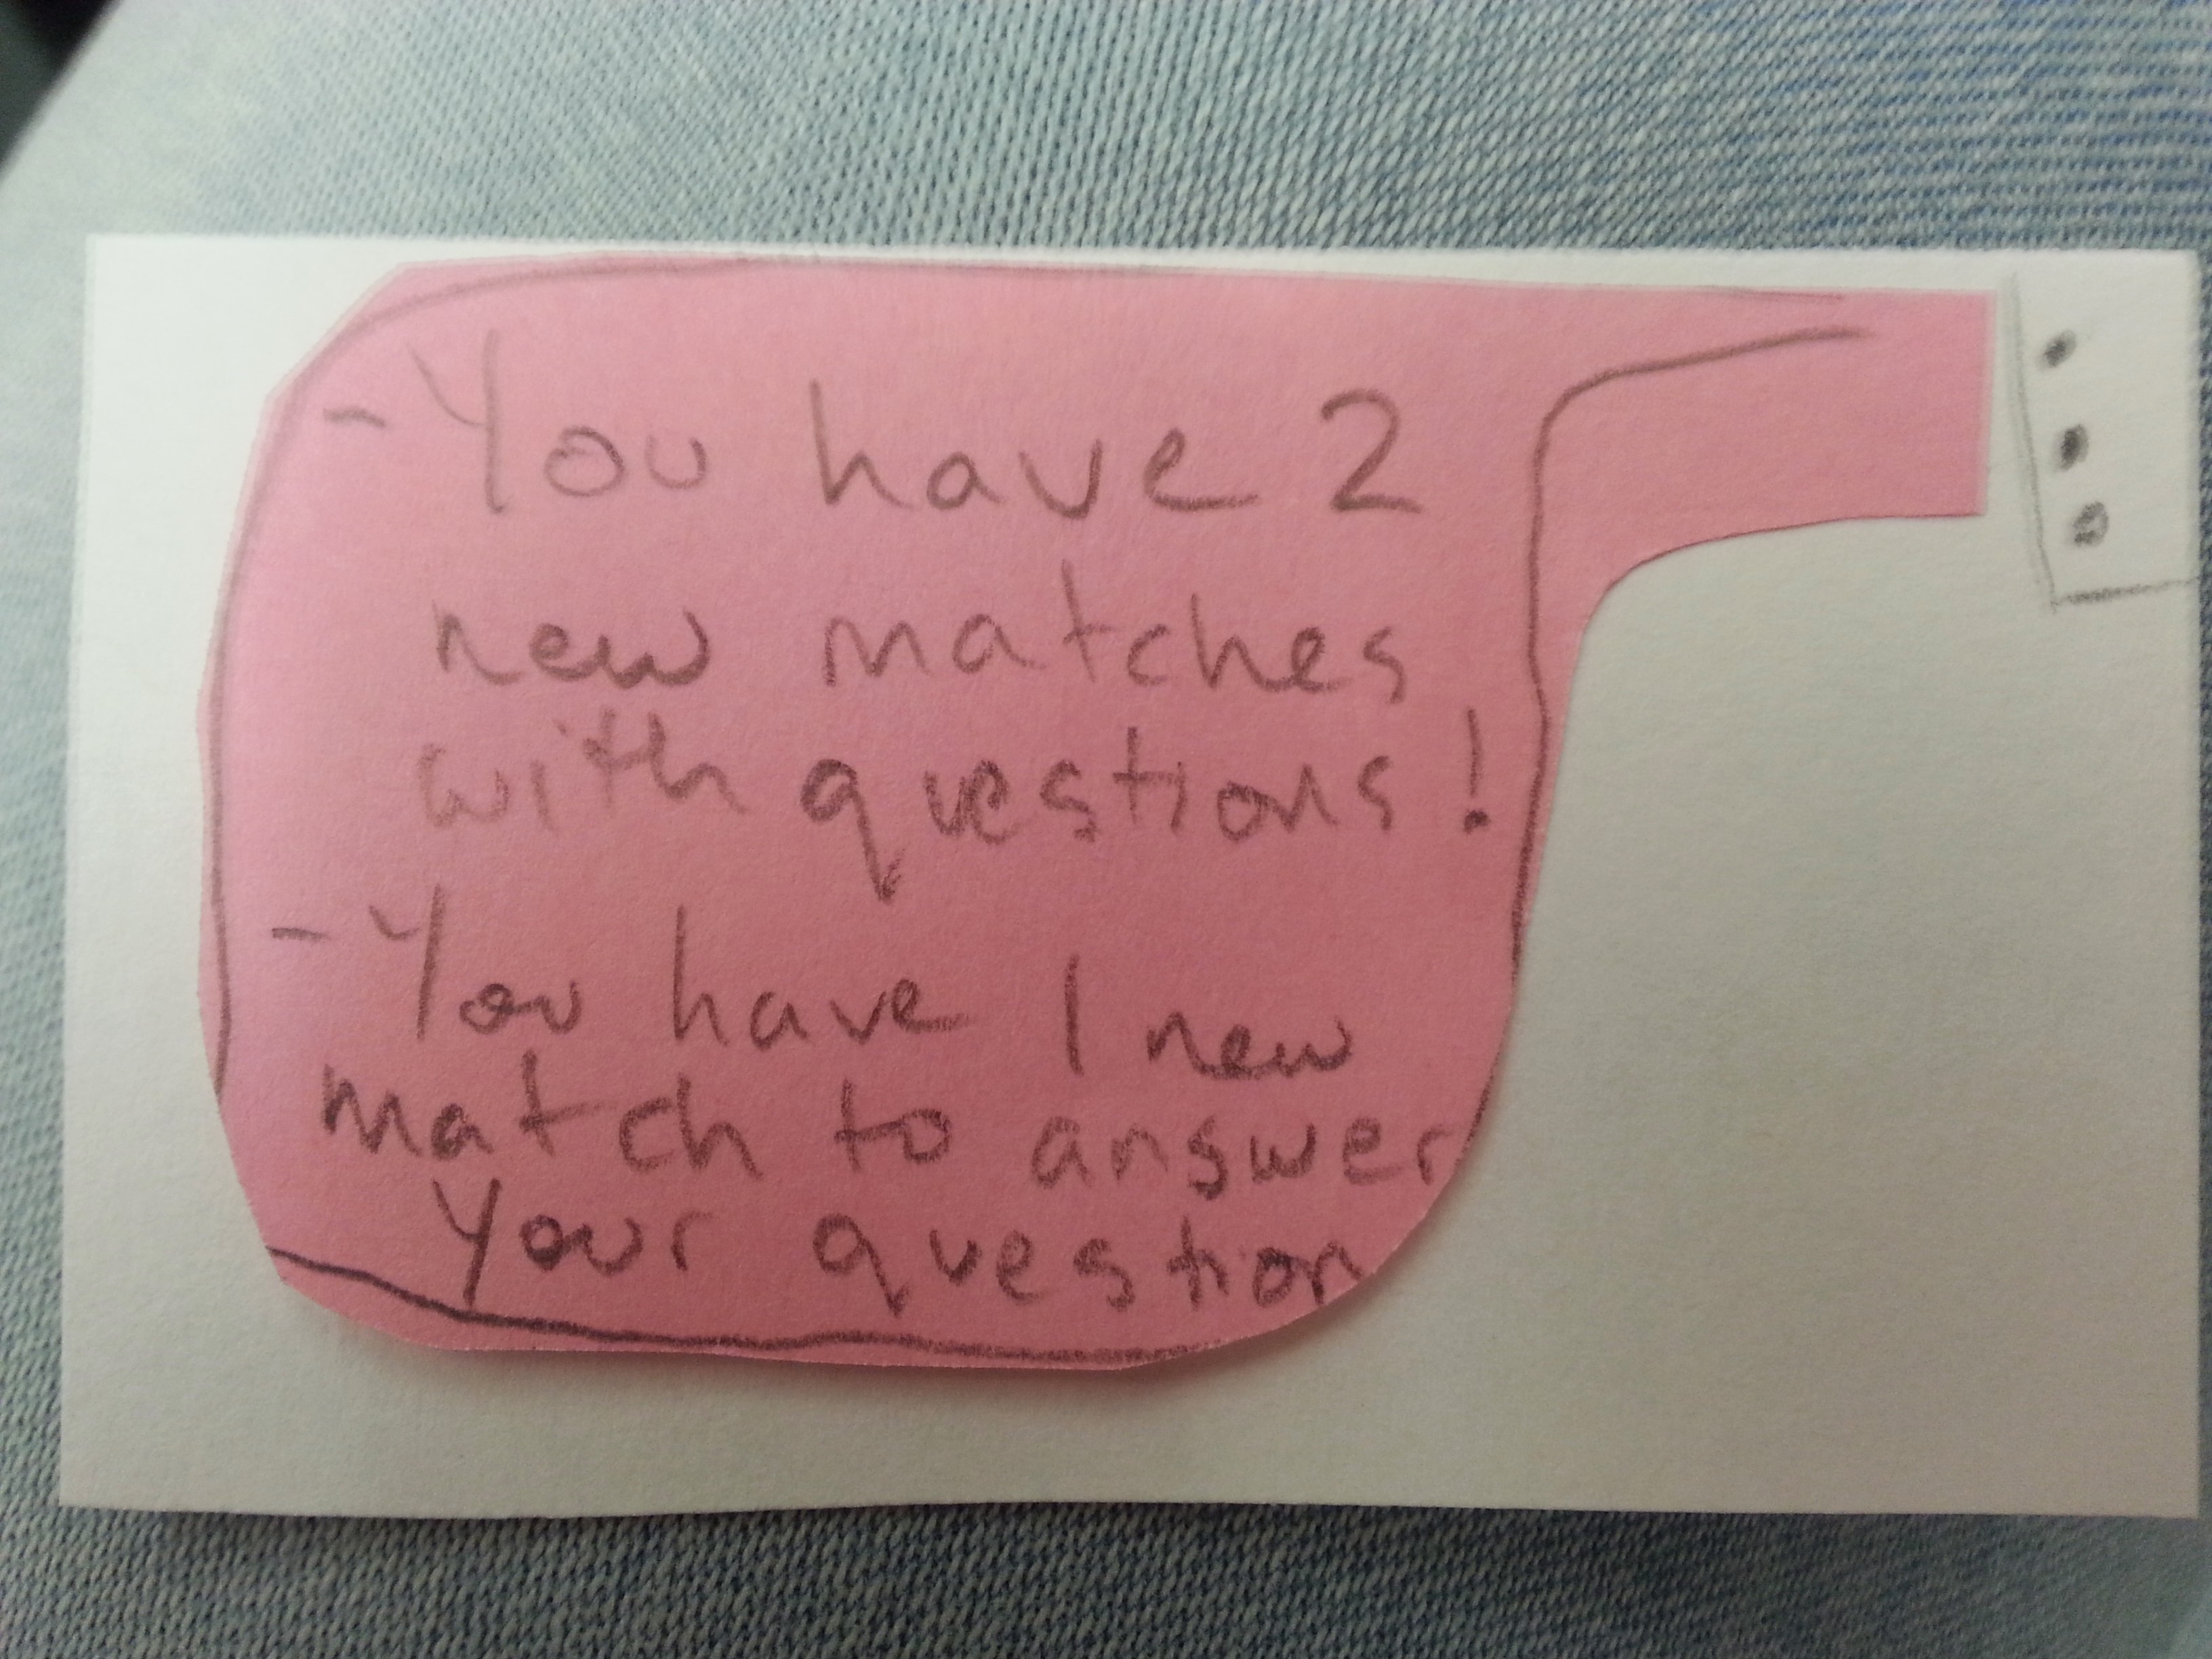 - You have 2
new matches
with questions!
- You have 1 new
match to answer
your question